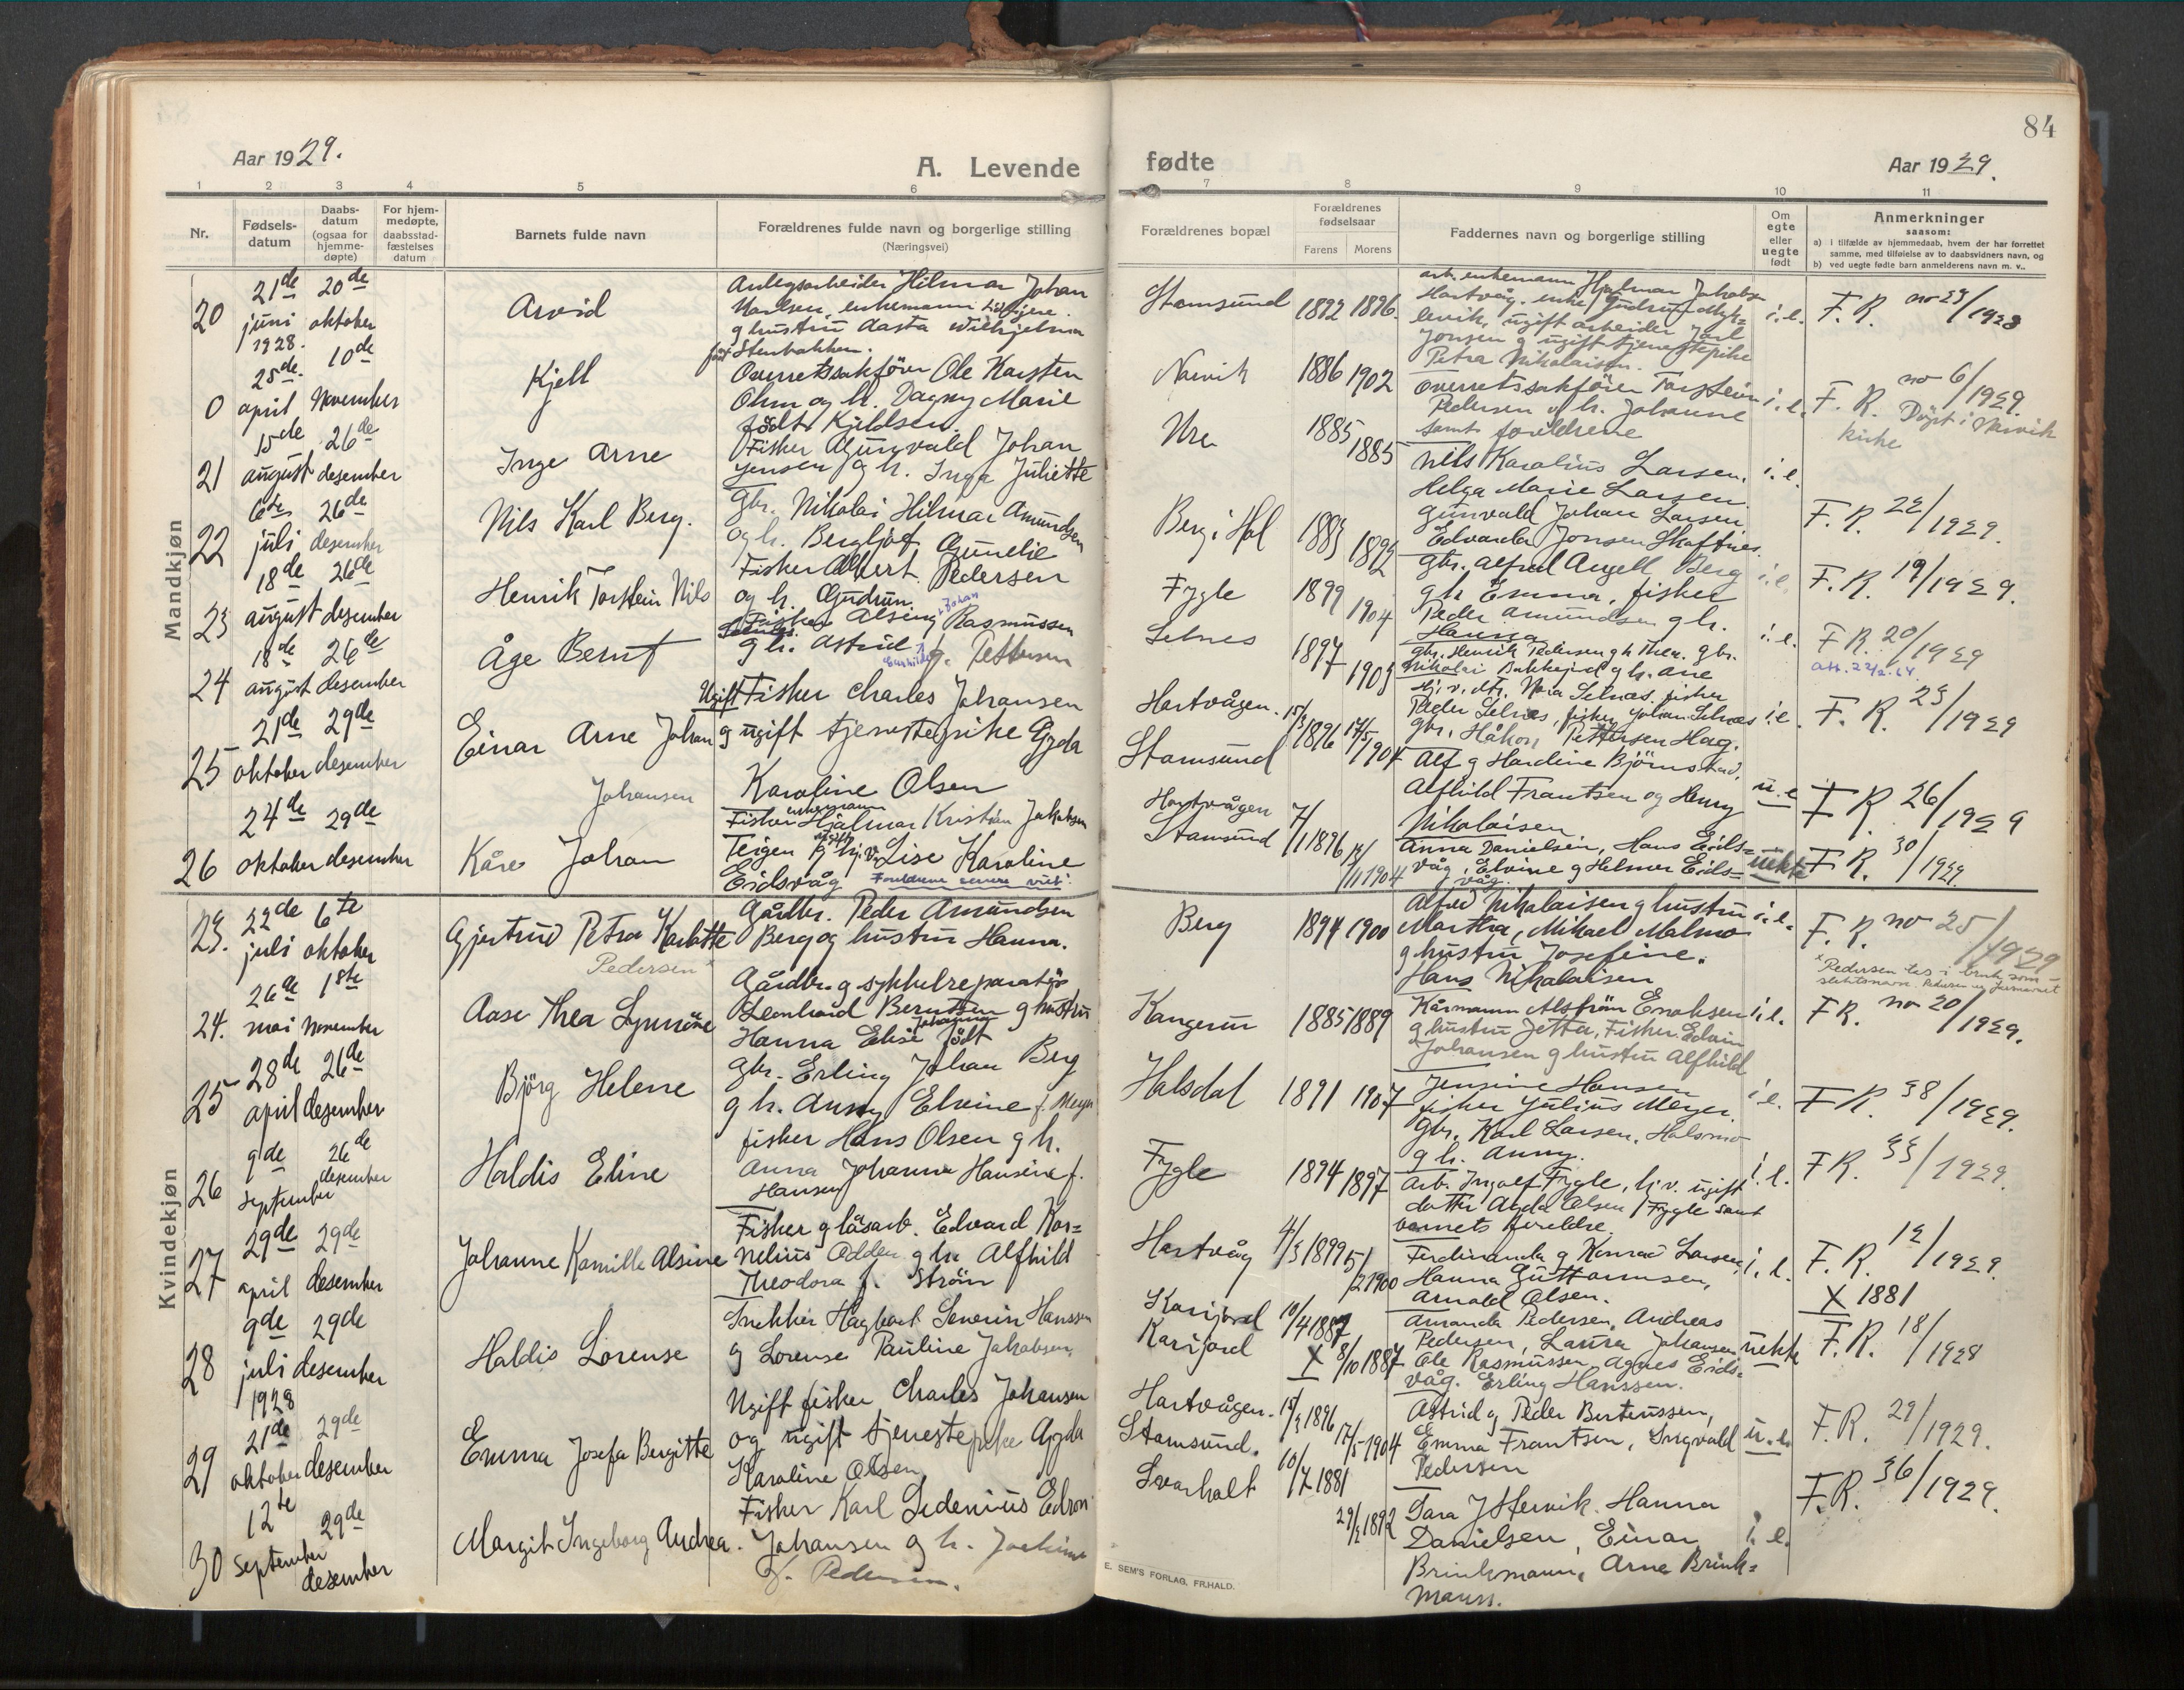 84
Aar 1929.
A. Levende
fødte
Aar 1929.
1 2 3 4 5 6 7 8 9 10 11
Nr.
Fødsels-
datum
Daabs-
datum
(ogsaa for
hjemme-
døpte)
For hjem-
medøpte,
daabsstad-
fæstelses
datum
Barnets fulde navn
Forældrenes fulde navn og borgerlige stilling
(Næringsvei)
Forældrenes bopæl
Forældrenes
fødselsaar
Farens Morens
Faddernes navn og borgerlige stilling
Om
egte
eller
uegte
født
Anmerkninger
saasom:
a) i tilfælde av hjemmedaab, hvem der har forrettet
samme, med tilføielse av to daabsvidners navn, og
b) ved uegte fødte barn anmelderens navn m. v..
Mandkjøn
20
21de juni 1928.
20de oktober
Arvid
Anlegsarbeider Hilmar Johan
Karlsen, enkemann
g hustru Aasta Wilhjelmine
født Stenbakken.
Stamsund
1892 1896.
arb. enkemann Hjalmar Jakobsen
Hartvåg. enke Gudrun
levik, ugift arbeider Jarl
Jonsen g ugift tjenestepike
Petra Nikolaisen.
i.e.
F. R. no 23/1928
0
25de april
10de November
Kjell
Overretssakfører Ole Karsten
Ohm og h. Dagny Marie
født Kjeldsen.
Narvik
1886 1902
Overretssakfører Torstein
Pedersen og h. Johanne
samt foreldrene
i.e.
F. R. no 6/1929.
Døpt i Narvik
kirke
21
15de august
26de desember
Inge Arne
Fisker Gunvald Johan
Jensen g h. Inga Juliette
Ure
1885 1885
Nils Karolius Larsen.
Helga Marie Larsen
Gunvald Johan Larsen
Edvarda Jonsen Skaftnes.
i.e.
F. R. 22/1929.
22
6te juli
26de desember
Nils Karl Berg.
Gbr. Nikolai Hilmar Amundsen
og h. Bergljot Gunelie
Berg i Hol
1883 1892
Gbr. Alfred Angell Berg
g h Emma, fisker
Peder Amundsen g h.
Hanna
i.e.
F. R. 19/1929.
23
18de august
26de desember
Henrik Torstein Nils
Fisker Albert Pedersen
og h. Gudrun.
Fygle
1899 1904
Gbr. Henrik Pedersen g h Thea. Gbr.
Nikolai Bakkejord g h. Ane
i.e.
F R 20/1929
24
18de august
26de desember
Åge Bernt
Fisker Alsing Johan Rasmussen
Selnes.
g h. Astrid f. Pettersen
Selnes
1897 1903
Hj. v. dtr. Nora Selnes. fisker
Peder Selnes, fisker Johan Selnes
gbr. Håkon Pettersen Hag.
i.e.
F. R. 23/1929
25
21de oktober
29de desember
Einar Arne Johan
Johansen
Ugift Fisker Charles Johansen
g ugift tjenestepike Gyda
Karoline Olsen
Hartvågen.
Stamsund
15/3 1896 17/5 1904
Alf g Hardine Bjørnstad,
Alfhild Frantsen og Henry
Nikolaisen.
u.e
F R 26/1929
26
24de oktober
29de desember
Kåre Johan
Fisker enkemann Hjalmar Kristian Jakobsen
Teigen g ugift hj. v. Lise Karoline
Eidsvåg
Hartvågen
Stamsund
7/1 1896
/11 1904
Anna Danielsen, Hans Eids-
våg, Elvine g Helmer Eids-
våg.
uekte
F R. 30/1929.
Kvindekjøn
23.
22de juli
6te oktober
Gjertrud Petra Karlotte
Pedersen x
Gårdbr. Peder Amundsen
Berg og hustru Hanna.
Berg
1894 1900
Alfred Nikolaisen g hustru
Martha, Mikael Malmo
g hustru Josefine.
Hans Nikolaisen
i.e.
F. R. no 25/1929
x Pedersen tas i bruk som
24.
26de mai
1ste November
Aase Thea Synnöve
Gårdbr. g sykkelreparatør
Leonhard Berntsen g hustru
Hanna Elise Johanne født
Kangerur
1885 1889
Kårmann Alström Enoksen
g hustru Jetta, Fisker Edvin
Johansen g hustru Alfhild
i.e.
FR. no 20/1929.
25
28de april
26de desember
Björg Helene
Gbr. Erling Johan Berg
g h. Anny Elvine f. Meyer
Halsdal
1891 1907
Jensine Hansen
fisker Julius Meyer
Gbr. Karl Larsen, Halsmo
g h. Anny.
i e.
F R. 38/1929.
26
9de september
26de desember
Haldis Eline
fisker Hans Olsen g h.
Anna Johanna Hansine f.
Hansen
Fygle
1894 1897
Arb. Ingolf Fygle, hj.v. ugift
datter Agda Olsen, Fygle samt
barnets foreldre.
i.e.
F R. 33/1929.
27
29de april
29de desember
Johanne Kamille Alsine
Fisker g låsarb. Edvard Kor-
nelius Odden g h. Alfhild
Theodora f. Ström
Hartvåg
4/3 1899 5/2 1900
Ferdinanda g Konrad Larsen,
Hanna Guttormsen,
Arnold Olsen.
i.e.
F. R. 12/1929.
X 1881
28
9de juli 1928
29de desember
Haldis Lorense
Snekker Hagbart Severin Hanssen
g Lorense Pauline Jakobsen.
Karijord
Karijord
10/4 1887
X 8/10 1887
Amanda Pedersen, Andreas
Pedersen, Laura Johansen
Ole Rasmussen, Agnes Eids-
våg. Erling Hanssen.
uekte
F. R. 18/1928
29
21de oktober
29de desember
Emma Josefa Bergitte
Ugift fisker Charles Johansen
og ugift tjenestepike Gyda
Karoline Olsen
Hartvågen.
Stamsund.
15/3 1896
17/5 1904
Astrid g Peder Berteussen,
Emma Frantsen, Ingvald
Pedersen
u.e.
F. R. 29/1929.
30
12te september
29de desember
Margit Ingeborg Andrea.
Fisker Karl Sedenius Edvon
Johansen g h. Joakime
f. Pedersen.
Svarholt
10/7 1881
1892
Tara J Hervik. Hanna
Danielsen, Einar
Brinkmann, Arne Brink-
mann.
i.e.
F. R. 36/1929.
E. SEM'S FORLAG, FR.HALD.